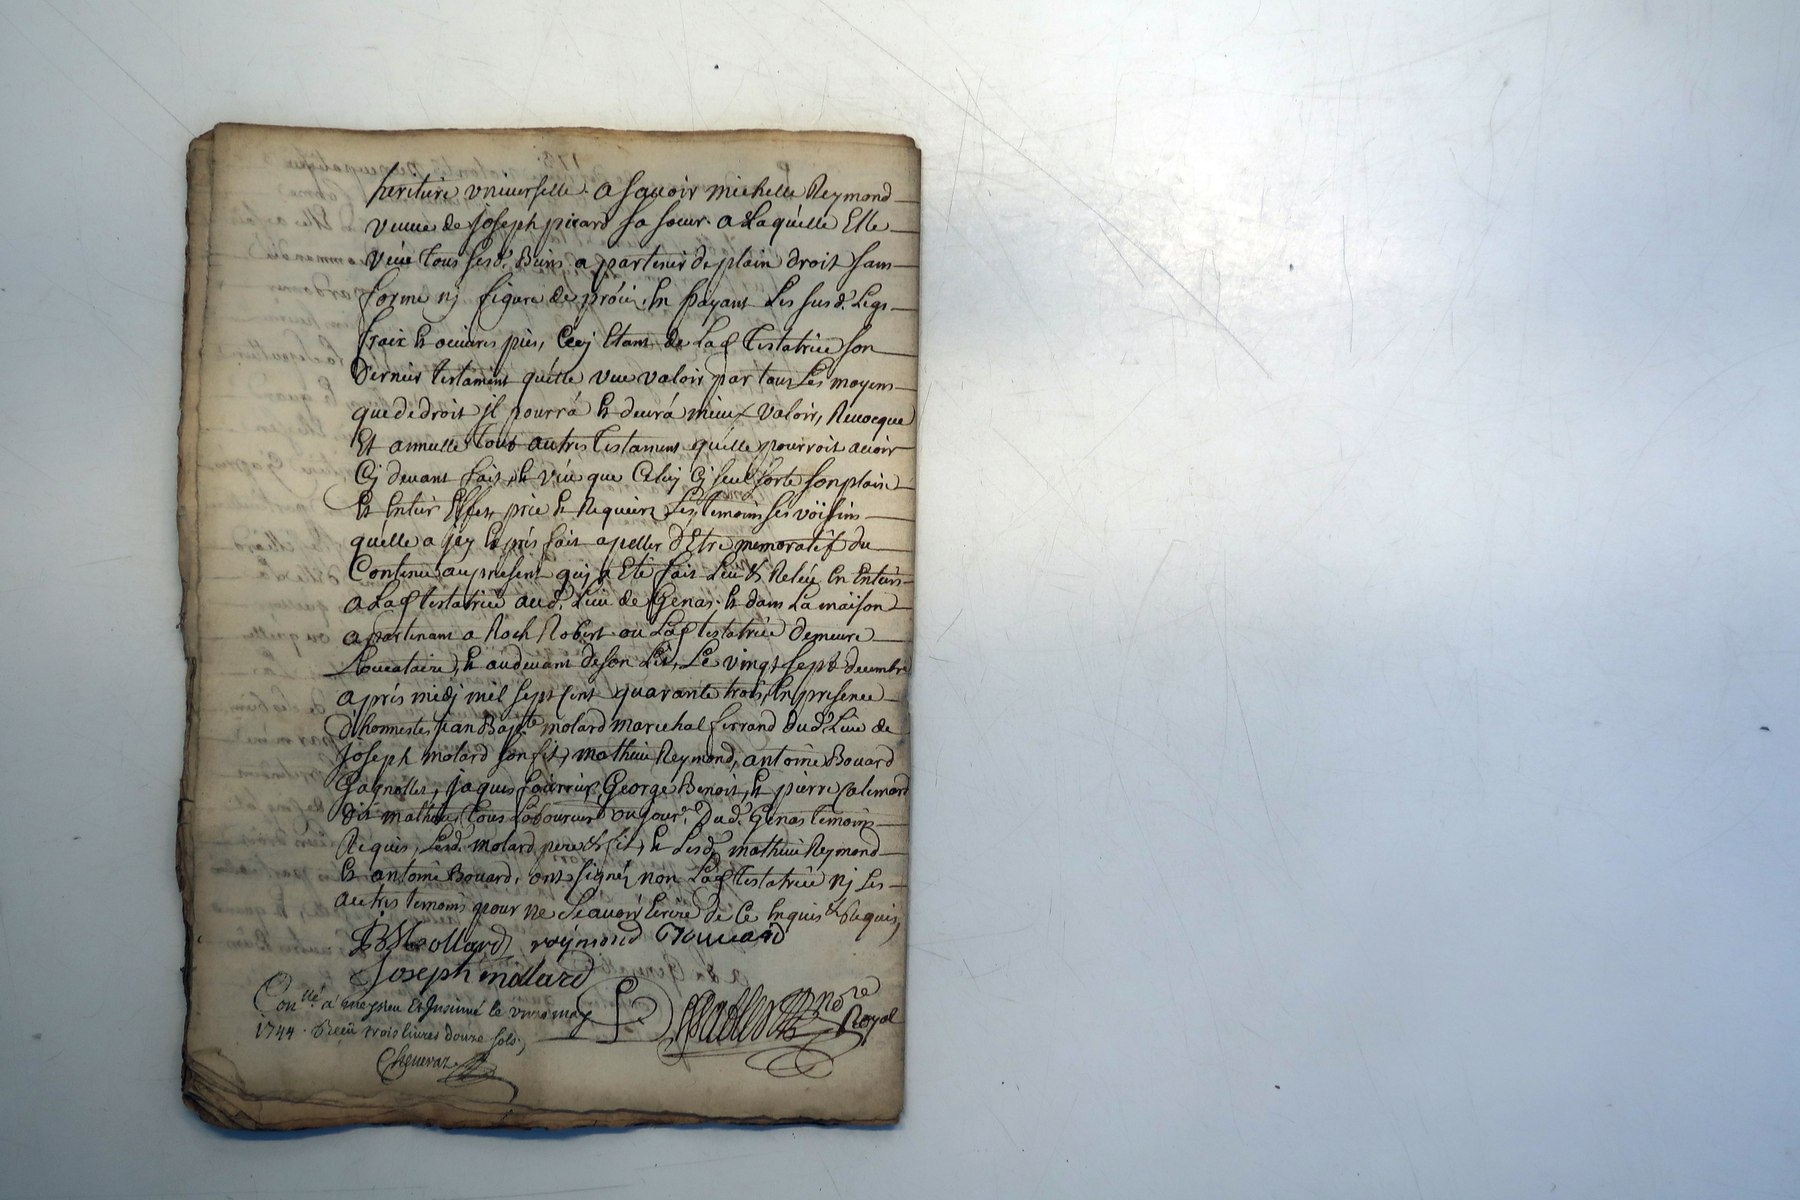 heritiere universelle. a scavoir michelle Reymond
veuve de joseph picard sa soeur. a Laquelle Elle
veüe tous sesd. Biens apartenir de plain droit sans
forme nj figure de procés, En payant Les susd. Legs
fraix Et oeuvres pies, Cecj Etant de Lad Testatrice son
Dernier testament quelle veue valoir par tous Les moyens
que de droit jl pourrá Et devrá mieux valoir, Revocque
Et annulle tous autres Testament quelle pourroit avoir
Cj devant fait, Et veüe que Celuj Cj seul sorte son plain
Et Entier Effet, prie Et Requiert Les temoins ses voisins
quelle a jcy Exprés fait apeller d'Etre memoratif du
Contenu au present quj a Eté fait Leü & Releü En Entiers
a Lad testatrice aud. Lieu de Genas. Et dans La maison
apartenant a Roch Robert ou Lad testatrice demeure
Locataire, Et au devant de son Lit, Le vingt sept decembre
aprés midj mil sept cent quarante trois, En presence
d'honnestes jean Bapte molard marechal ferrand dud. Lieu de
Joseph molard son fils, mathieu Reymond, antoine Bouard
Gagnollet, jaques fourrier, George Benoit, Et pierre
dit mathieu, tous Laboureurs ou jour. Dud. Genas temoins
Requis, Lesd. molard pere & fils, Et Lesd. mathieu Reymond
Et antoine Bouard, ont signé, non Lad testatrice nj Les
autres temoins pour ne Scavoir Ecrire de Ce Enquis & Requis,
JB Mollard reymond Bouuard
Joseph mollard
Conllé a meyzieu Et Insinué le may
1744. Receu trois livres douze sols.
nore
Royal